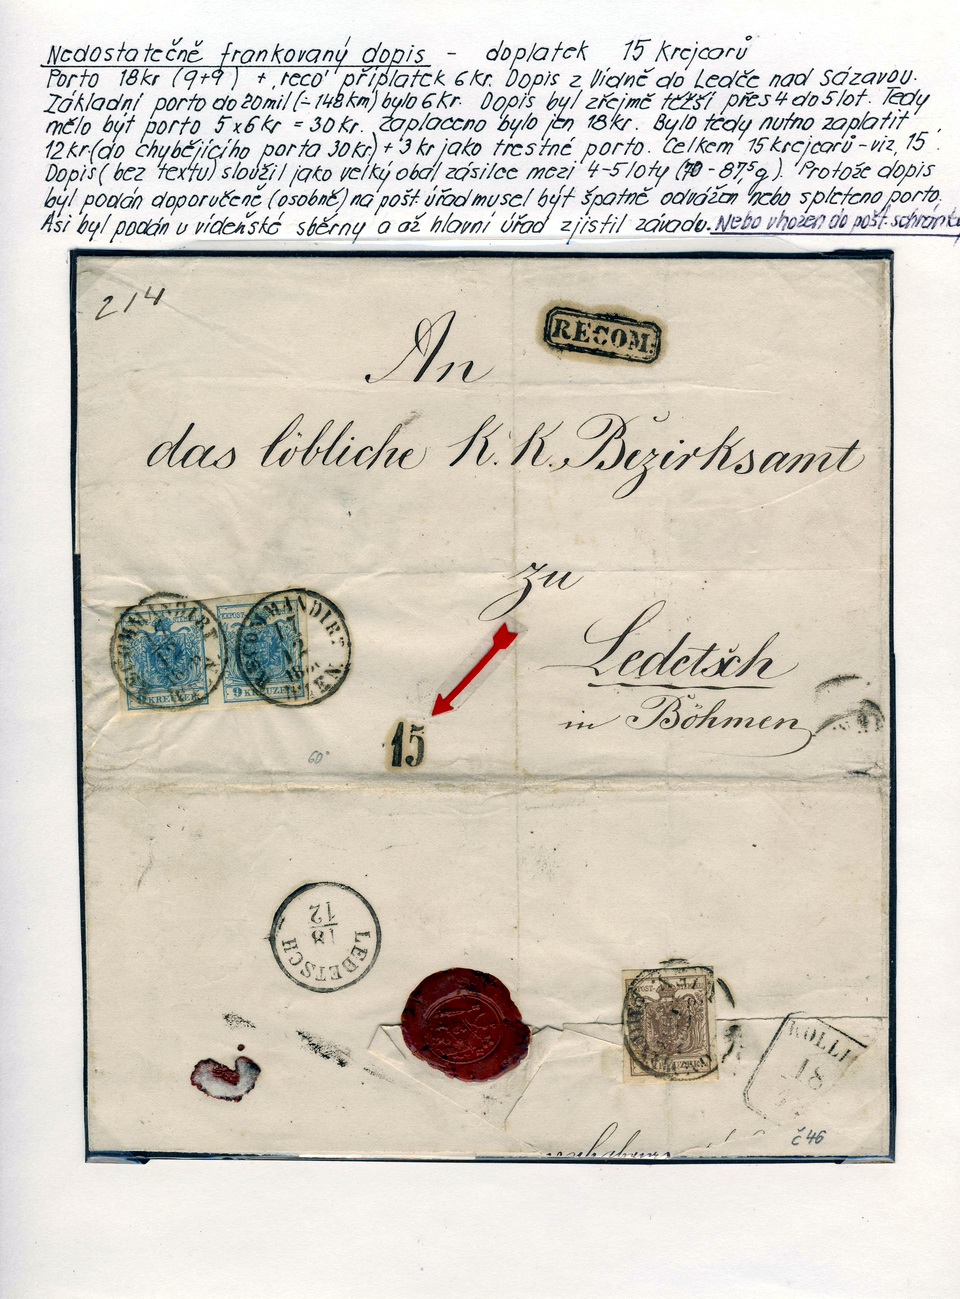 Nedostatečně frankovaný dopis - doplatek 15 krejcarů
Porto 18kr (9+9) + „reco“ příplatek 6kr. Dopis z Vídně do Ledče nad Sázavou.
Základní porto do 20 mil (- 148 km) bylo 6 kr. Dopis byl zřejmě těžší přes 4 do 5 lot. Tedy
mělo být porto 5 x 6 kr = 30 kr. Zaplaceno bylo jen 18 kr. Bylo tedy nutno zaplatit
12 kr (do chybějícího porta 30 kr) + 3 kr jako trestné porto. Celkem 15 krejcarů - viz „15“.
Dopis (bez textu) sloužil jako velký obal zásilce mezi 4-5 loty (70 - 87,5g). Protože dopis
byl podán doporučeně (osobně) na pošt. úřad musel být špatně odvážen nebo spleteno porto.
Asi byl podán u vídeňské sběrny a až hlavní úřad zjistil závadu. Nebo vhozen do pošt. schránky
214
RECOM.
An
das löbliche K. K. Bezirksamt
zu
Ledetsch
in Böhmen
RECOMMANDIRT
WIEN.
9 KREUZER
RECOMMANDIRT
WIEN.
9 KREUZER
15
60°
LEDETSCH
18
12
KOLLI
18
č 46